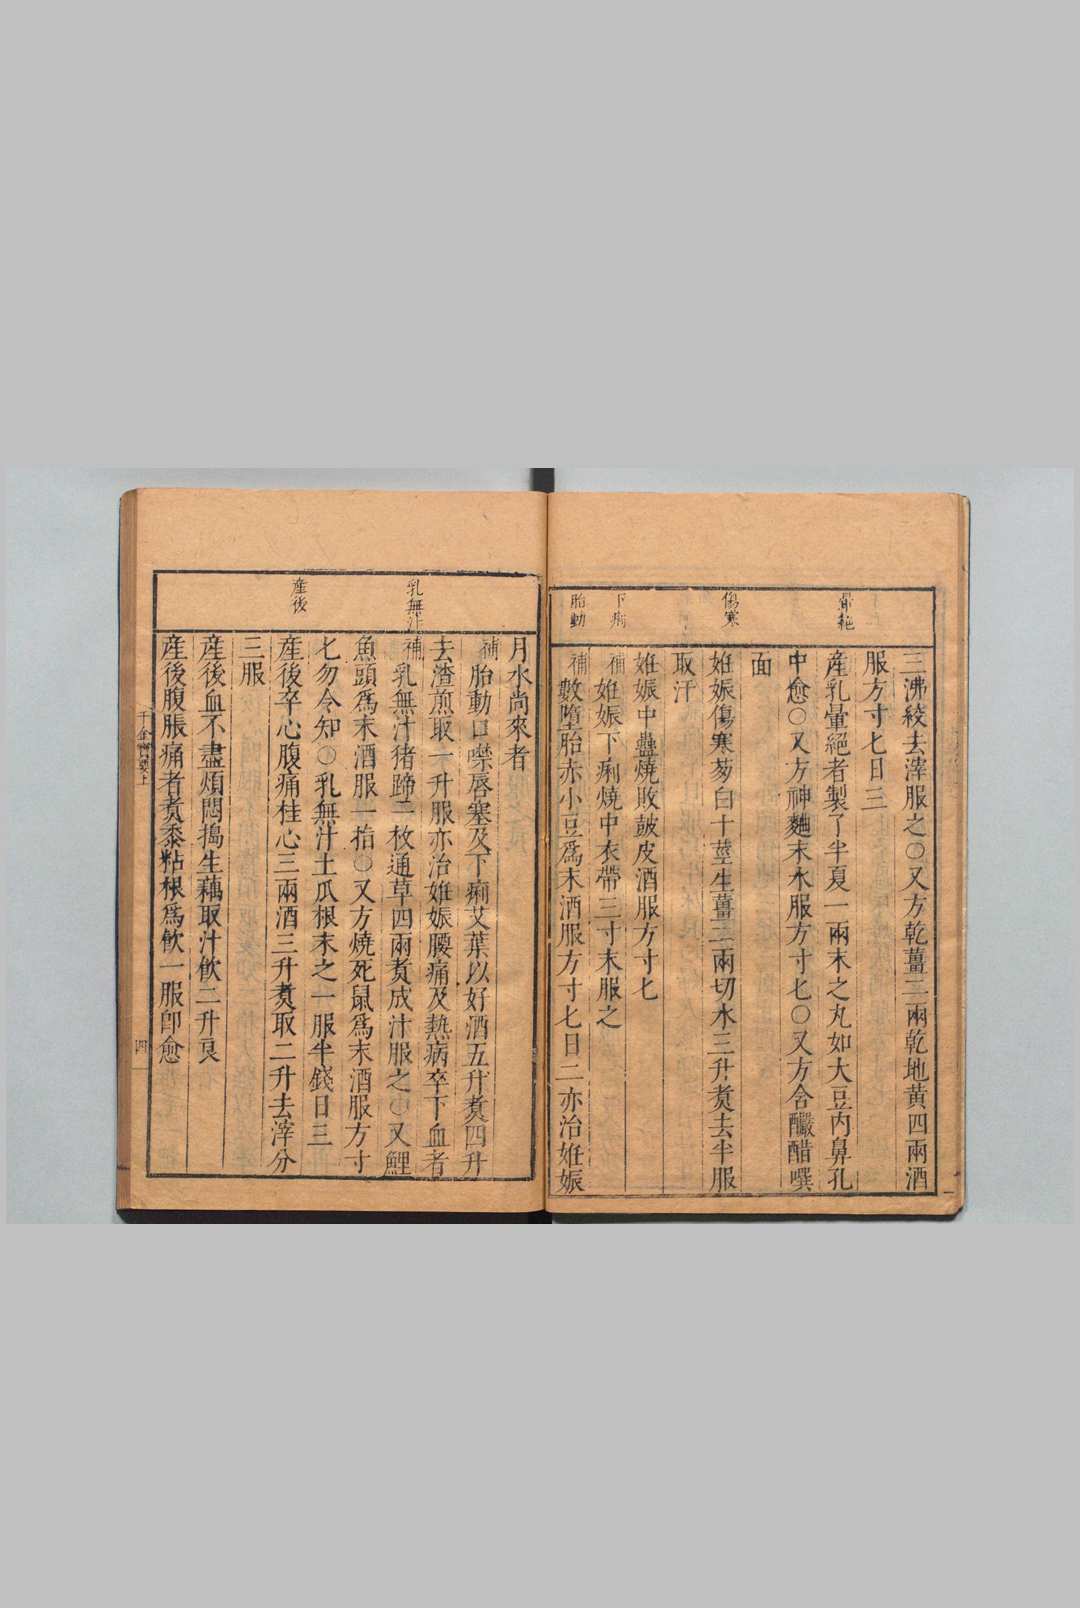 暈絶
傷寒
下痢
胎動
三沸絞去滓服之○又方乾薑二兩乾地黄四兩酒
服方寸七日三
産乳暈絕者製了半夏一兩末之丸如大豆内鼻孔
中愈○又方神麯末水服方寸七○又方含釅醋噀
面
姙娠傷寒葱白十莖生薑二兩切水三升煑去半服
取汗
姙娠中蠱燒敗鼓皮酒服方寸七
補姙娠下痢燒中衣帶三寸末服之
補數墮胎赤小豆爲末酒服方寸七日二亦治姙娠
乳無汁
産後
月水尚來者
補胎動口噤唇塞及下痢艾葉以好酒五升煑四升
去渣煎取一升服亦治姙娠腰痛及熱病卒下血者
補乳無汁猪蹄二枚通草四兩煑成汁服之○又鯉
魚頭爲末酒服一㧓○又方燒死鼠爲末酒服方寸
七勿令知○乳無汁土瓜根末之一服半錢日三
産後卒心腹痛桂心三兩酒三升煑取二升去滓分
三服
産後血不盡煩悶搗生藕取汁飲二升良
産後腹脹痛者煑黍粘根爲飲一服卽愈
四